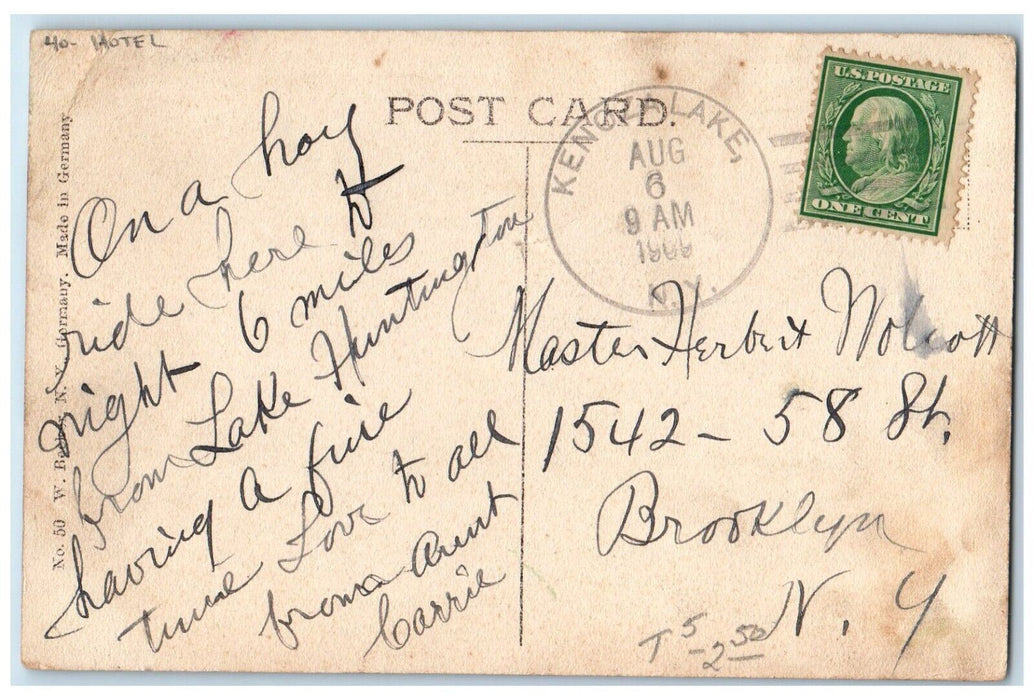 40- HOTEL
POST CARD.
No. 50 W. N. Y. Germany. Made in Germany
On a hay
ride here to
night 6 miles
from Lake Huntington
having a fine
time Love to all
from Aunt
Carrie
KENOZA LAKE,
AUG
6
9 AM
N.Y.
U.S. POSTAGE
ONE CENT
Master Herbert Wolcott
1542- 58 St.
Brooklyn
N. Y
T 5
- 2 50